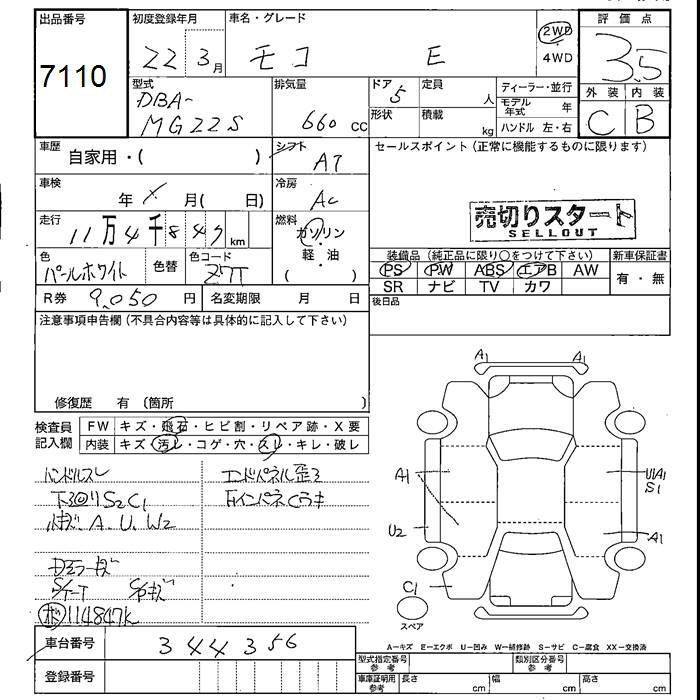 出品番号
7110
初度登録年月
22 3月
車名・グレード
モコ E
2WD
4WD
評価点
3.5
外装 内装
C B
型式
DBA-
MG22S
排気量
660 cc
ドア
5
形状
定員
人
積載
kg
ディーラー・並行
モデル年式 年
ハンドル 左・右
車歴 自家用・( )
シフト
AT
セールスポイント(正常に機能するものに限ります)
車検
年 月( 日)
冷房
AC
売切りスタート
SELLOUT
走行
11万4千847km
燃料
ガソリン
・
軽・油
( )
装備品(純正品に限り○をつけて下さい)
PS PW ABS エアB AW
SR ナビ TV カワ
新車保証書
有・無
色
パールホワイト
色替
色コード
Z7T
R券 9,050円
名変期限 月 日
後日品
注意事項申告欄(不具合内容等は具体的に記入して下さい)
修復歴 有(箇所 )
検査員記入欄
FW キズ・飛石・ヒビ割・リペア跡・X要
内装 キズ・汚レ・コゲ・穴・スレ・キレ・破レ
ハンドルスレ
エンドパネル歪ミ
下回りS2C1
キズ A.U.W2
114847K
A1 A1
A1
U1A1
S1
U2
A1
C1
スペア
車台番号 344356
登録番号
A-キズ E-エクボ U-凹み W-補修跡 S-サビ C-腐食 XX-交換済
型式指定番号 参考
類別区分番号 参考
車庫証明用 参考
長さ cm
幅 cm
高さ cm